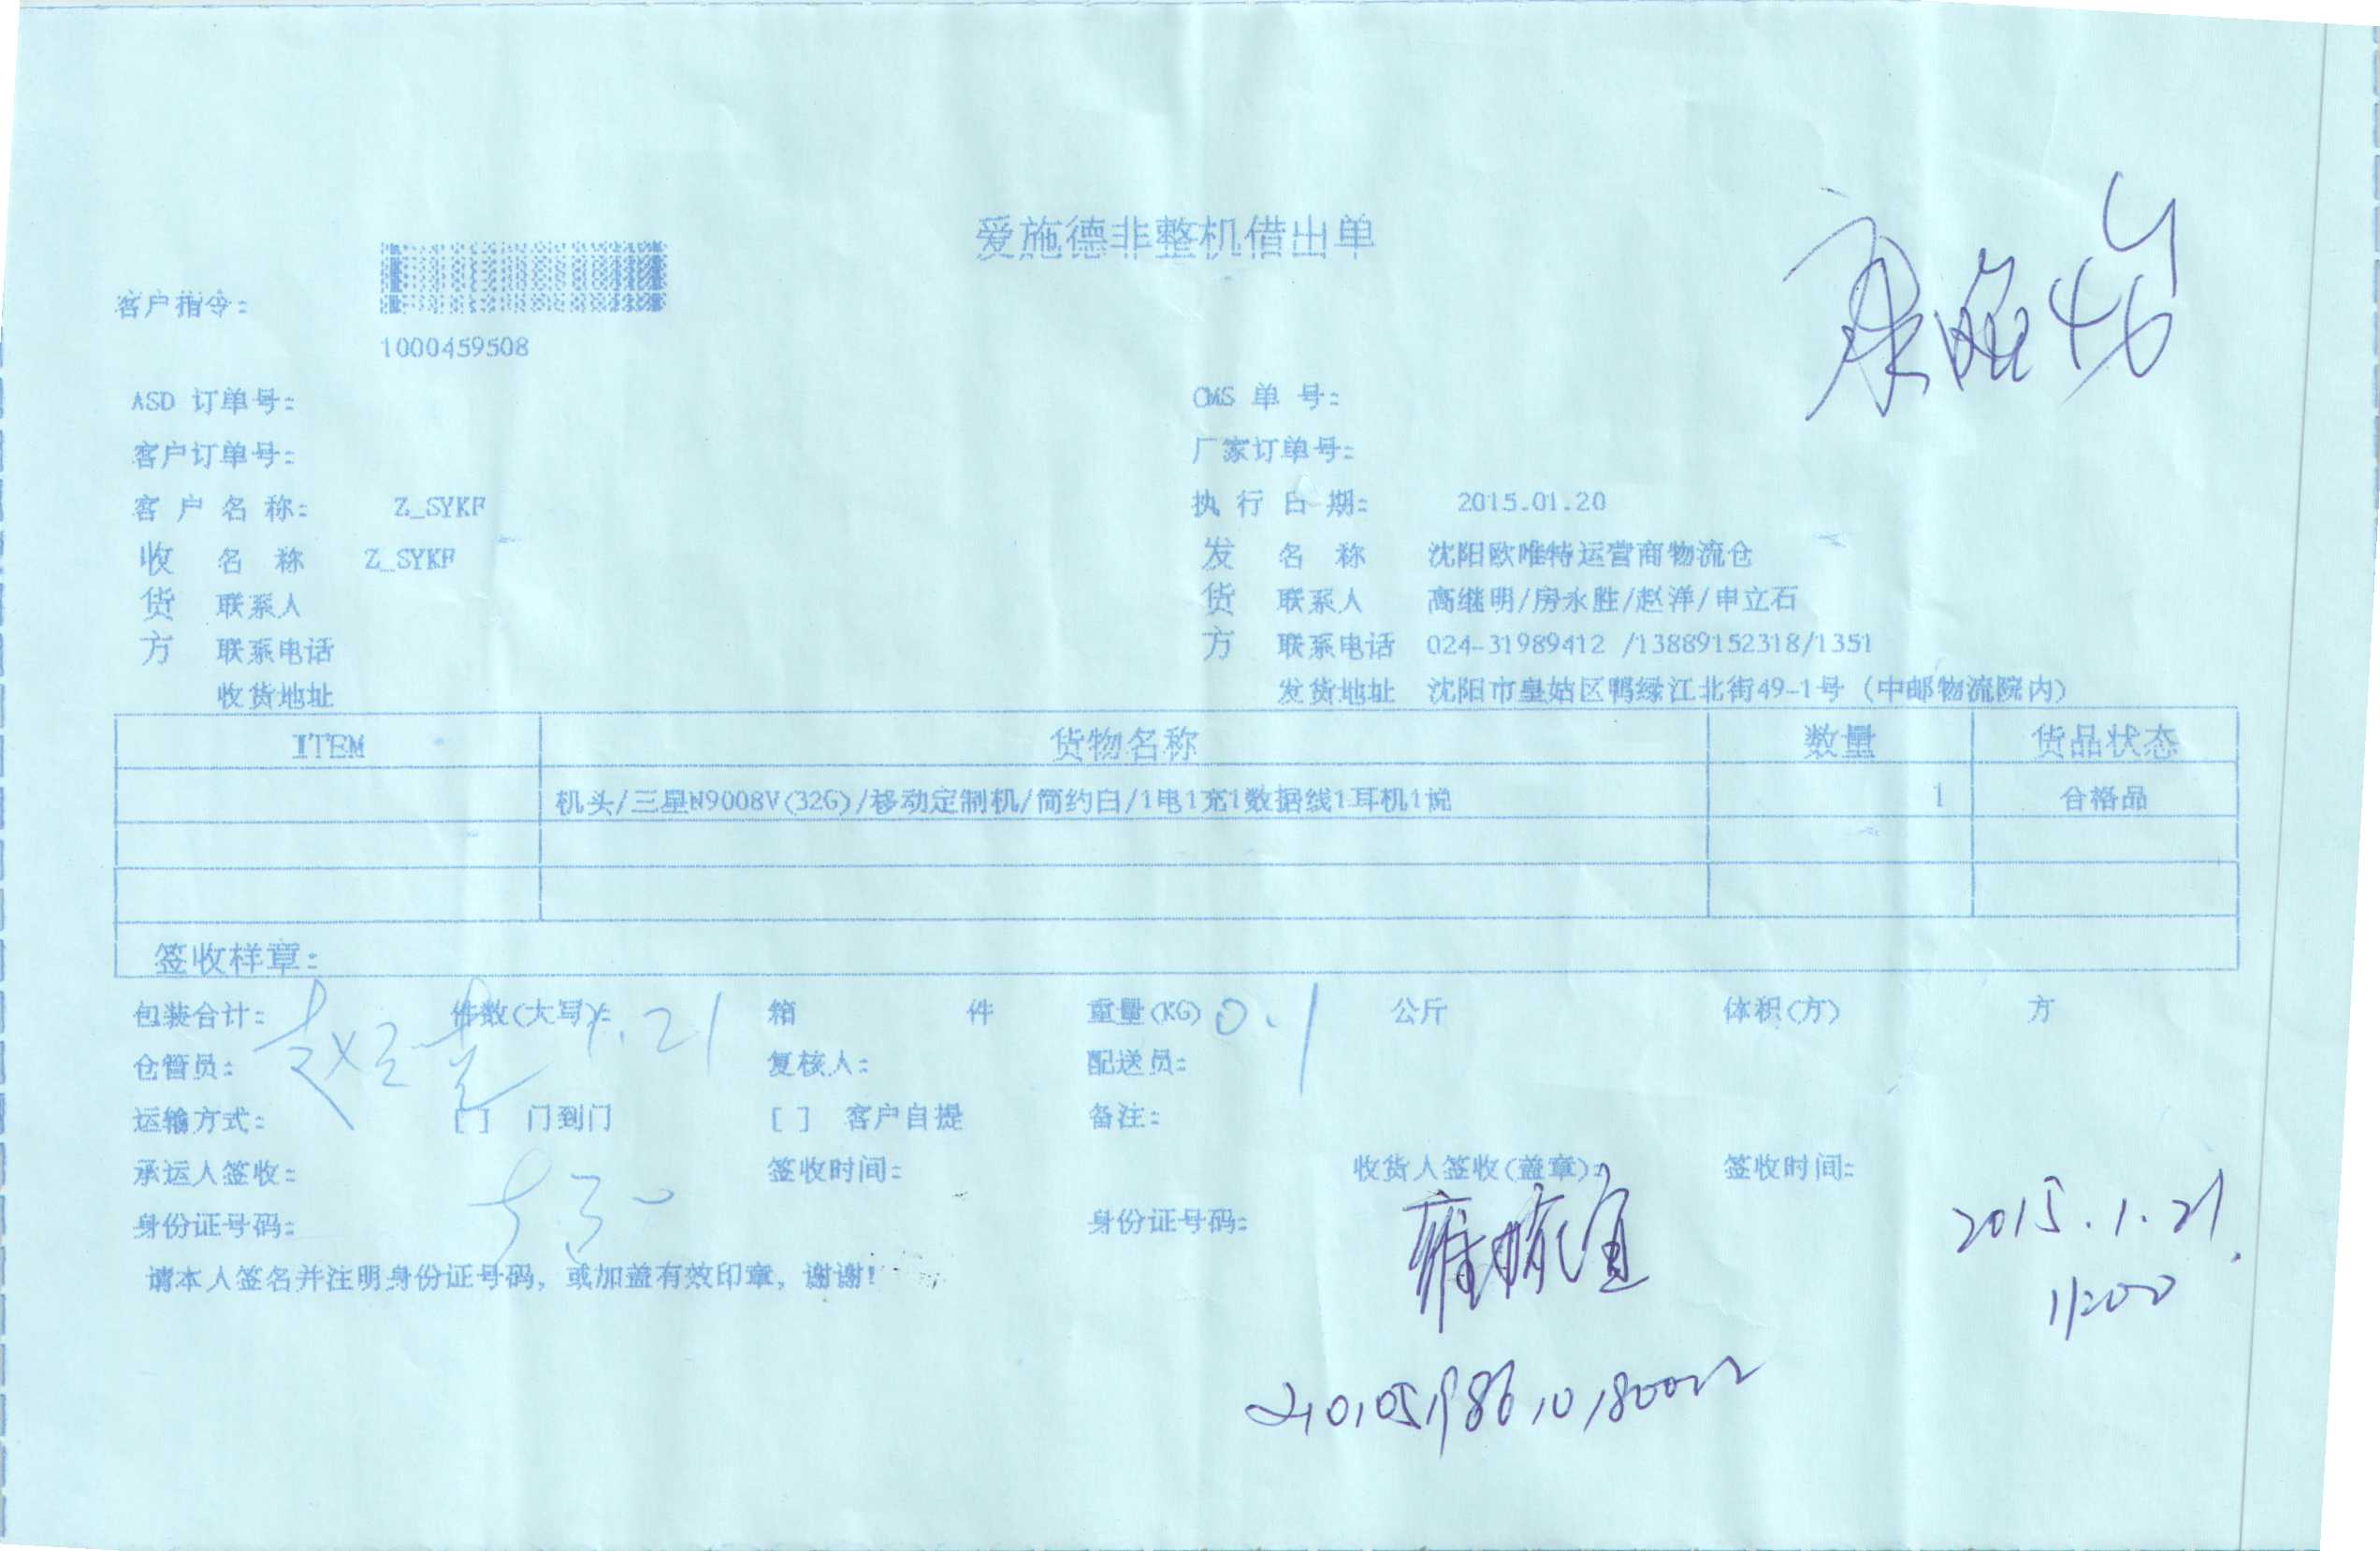 爱施德非整机借出单
客户指令:
1000459508
ASD 订单号: CMS 单 号:
客户订单号: 厂家订单号:
客 户 名 称: Z_SYKF 执 行 日 期: 2015.01.20
收 名 称 Z_SYKF 发 名 称 沈阳欧唯特运营商物流仓
货 联系人 货 联系人 高继明/房永胜/赵洋/申立石
方 联系电话 方 联系电话 024-31989412 /13889152318/1351
收货地址 发货地址 沈阳市皇姑区鸭绿江北街49-1号 (中邮物流院内)
ITEM 货物名称 数量 货品状态
机头/三星N9008V(32G)/移动定制机/简约白/1电1充1数据线1耳机1说 1 合格品
签收样章:
包装合计: 件数(大写): 1.21 箱 件 重量(KG) 0.1 公斤 体积(方) 方
仓管员: 复核人: 配送员:
运输方式: [ ] 门到门 [ ] 客户自提 备注:
承运人签收: 签收时间: 收货人签收(盖章): 签收时间:
身份证号码: 身份证号码: 2015.1.21
11:00
请本人签名并注明身份证号码, 或加盖有效印章, 谢谢!